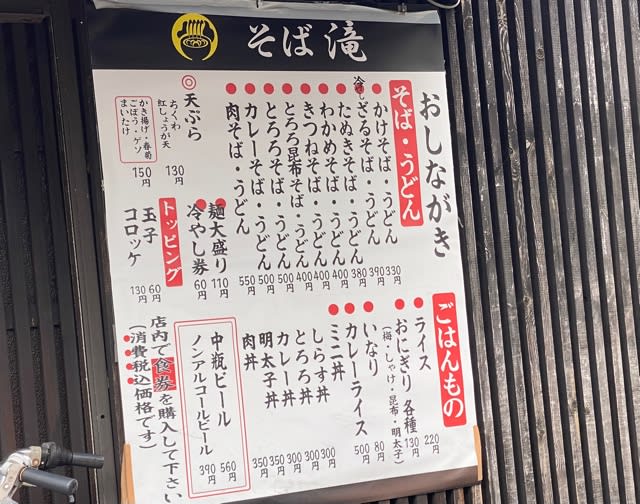 そば 滝
おしながき
そば・うどん
かけそば・うどん 330円
冷やし ざるそば・うどん 390円
たぬきそば・うどん 380円
わかめそば・うどん 400円
きつねそば・うどん 400円
とろろ昆布そば・うどん 400円
とろろそば・うどん 500円
カレーそば・うどん 500円
肉そば・うどん 550円
麺大盛り 110円
冷やし券 60円
◎天ぷら
ちくわ
紅しょうが天
130円
かき揚げ・春菊
ごぼう・ゲソ
まいたけ
150円
トッピング
玉子 60円
コロッケ 130円
ごはんもの
ライス 220円
おにぎり 各種 130円
(梅・しゃけ・昆布・明太子)
いなり 80円
カレーライス 500円
ミニ丼
しらす丼 300円
とろろ丼 300円
カレー丼 300円
明太子丼 350円
肉丼 350円
中瓶ビール 560円
ノンアルコールビール 390円
店内で食券を購入して下さい
(消費税込価格です)